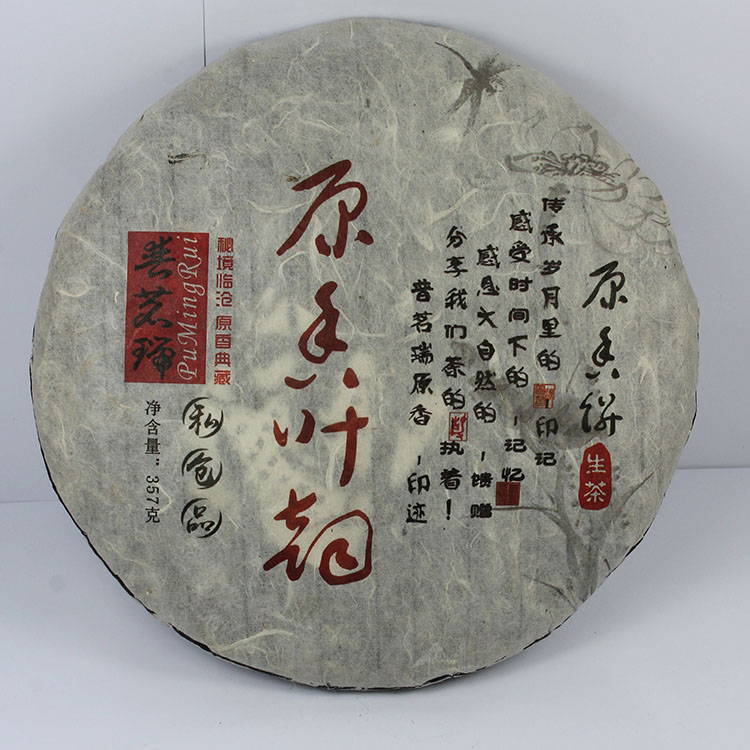 原香饼
生茶
传承岁月里的-印记
感受时间下的-记忆
感恩大自然的-馈赠
分享我们茶的执着!
普茗瑞原香-印迹
原香叶韵
秘境临沧 原香典藏
PuMingRui
普茗瑞
私仓品
净含量:357克